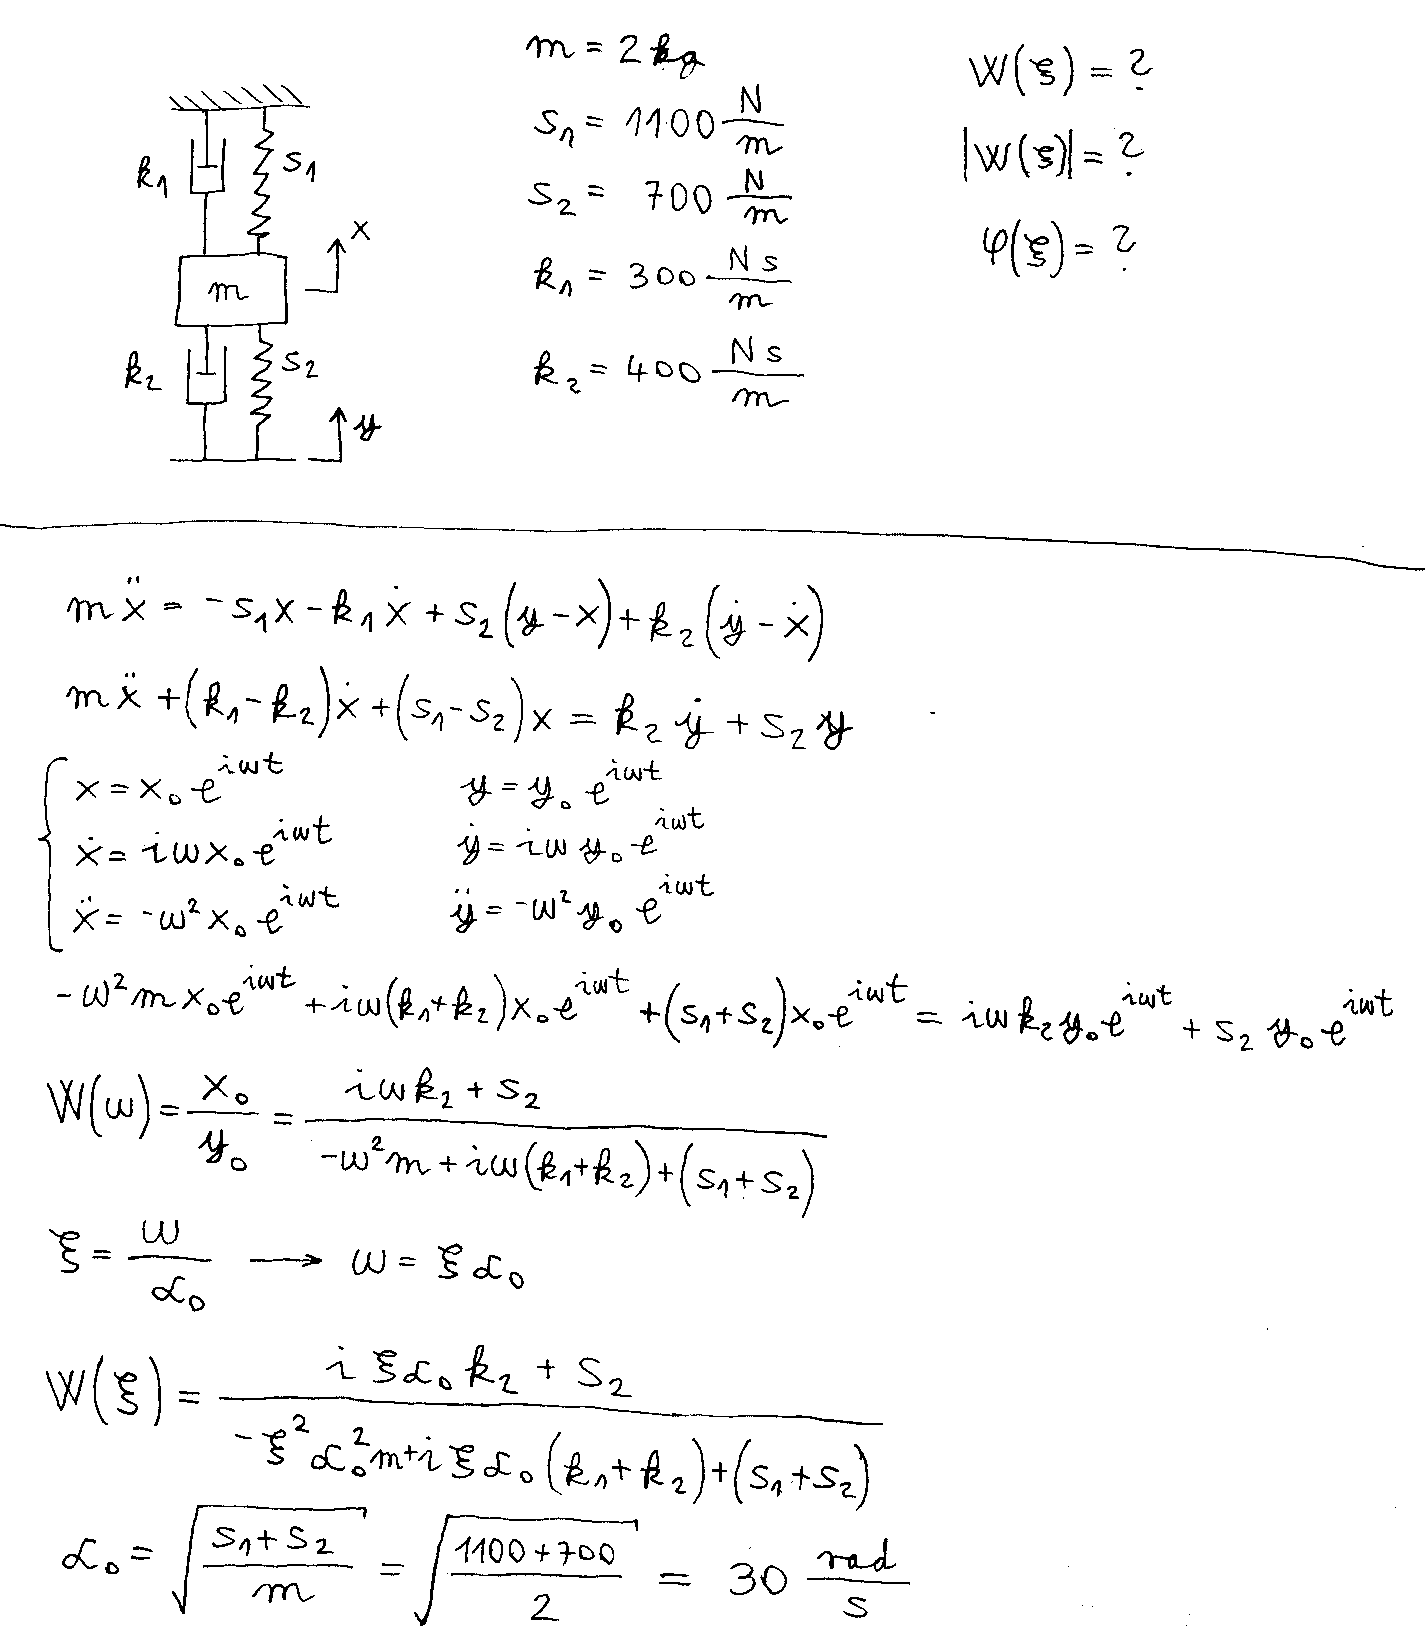 m = 2 kg
s₁ = 1100 N/m
s₂ = 700 N/m
k₁ = 300 Ns/m
k₂ = 400 Ns/m
W(ξ) = ?
|W(ξ)| = ?
φ(ξ) = ?
k₁ s₁
x
m
k₂ s₂
y
mẍ = -s₁x - k₁ẋ + s₂(y - x) + k₂(ẏ - ẋ)
mẍ + (k₁ - k₂)ẋ + (s₁ - s₂)x = k₂ẏ + s₂y
x = x₀ e^{iωt} y = y₀ e^{iωt}
ẋ = iωx₀ e^{iωt} ẏ = iωy₀ e^{iωt}
ẍ = -ω²x₀ e^{iωt} ÿ = -ω²y₀ e^{iωt}
-ω²m x₀e^{iωt} + iω(k₁+k₂)x₀e^{iωt} + (s₁+s₂)x₀e^{iωt} = iωk₂y₀e^{iωt} + s₂y₀e^{iωt}
W(ω) = x₀/y₀ = (iωk₂ + s₂)/(-ω²m + iω(k₁+k₂) + (s₁+s₂))
ξ = ω/α₀ → ω = ξα₀
W(ξ) = (iξα₀k₂ + s₂)/(-ξ²α₀²m + iξα₀(k₁+k₂) + (s₁+s₂))
α₀ = √((s₁+s₂)/m) = √((1100+700)/2) = 30 rad/s